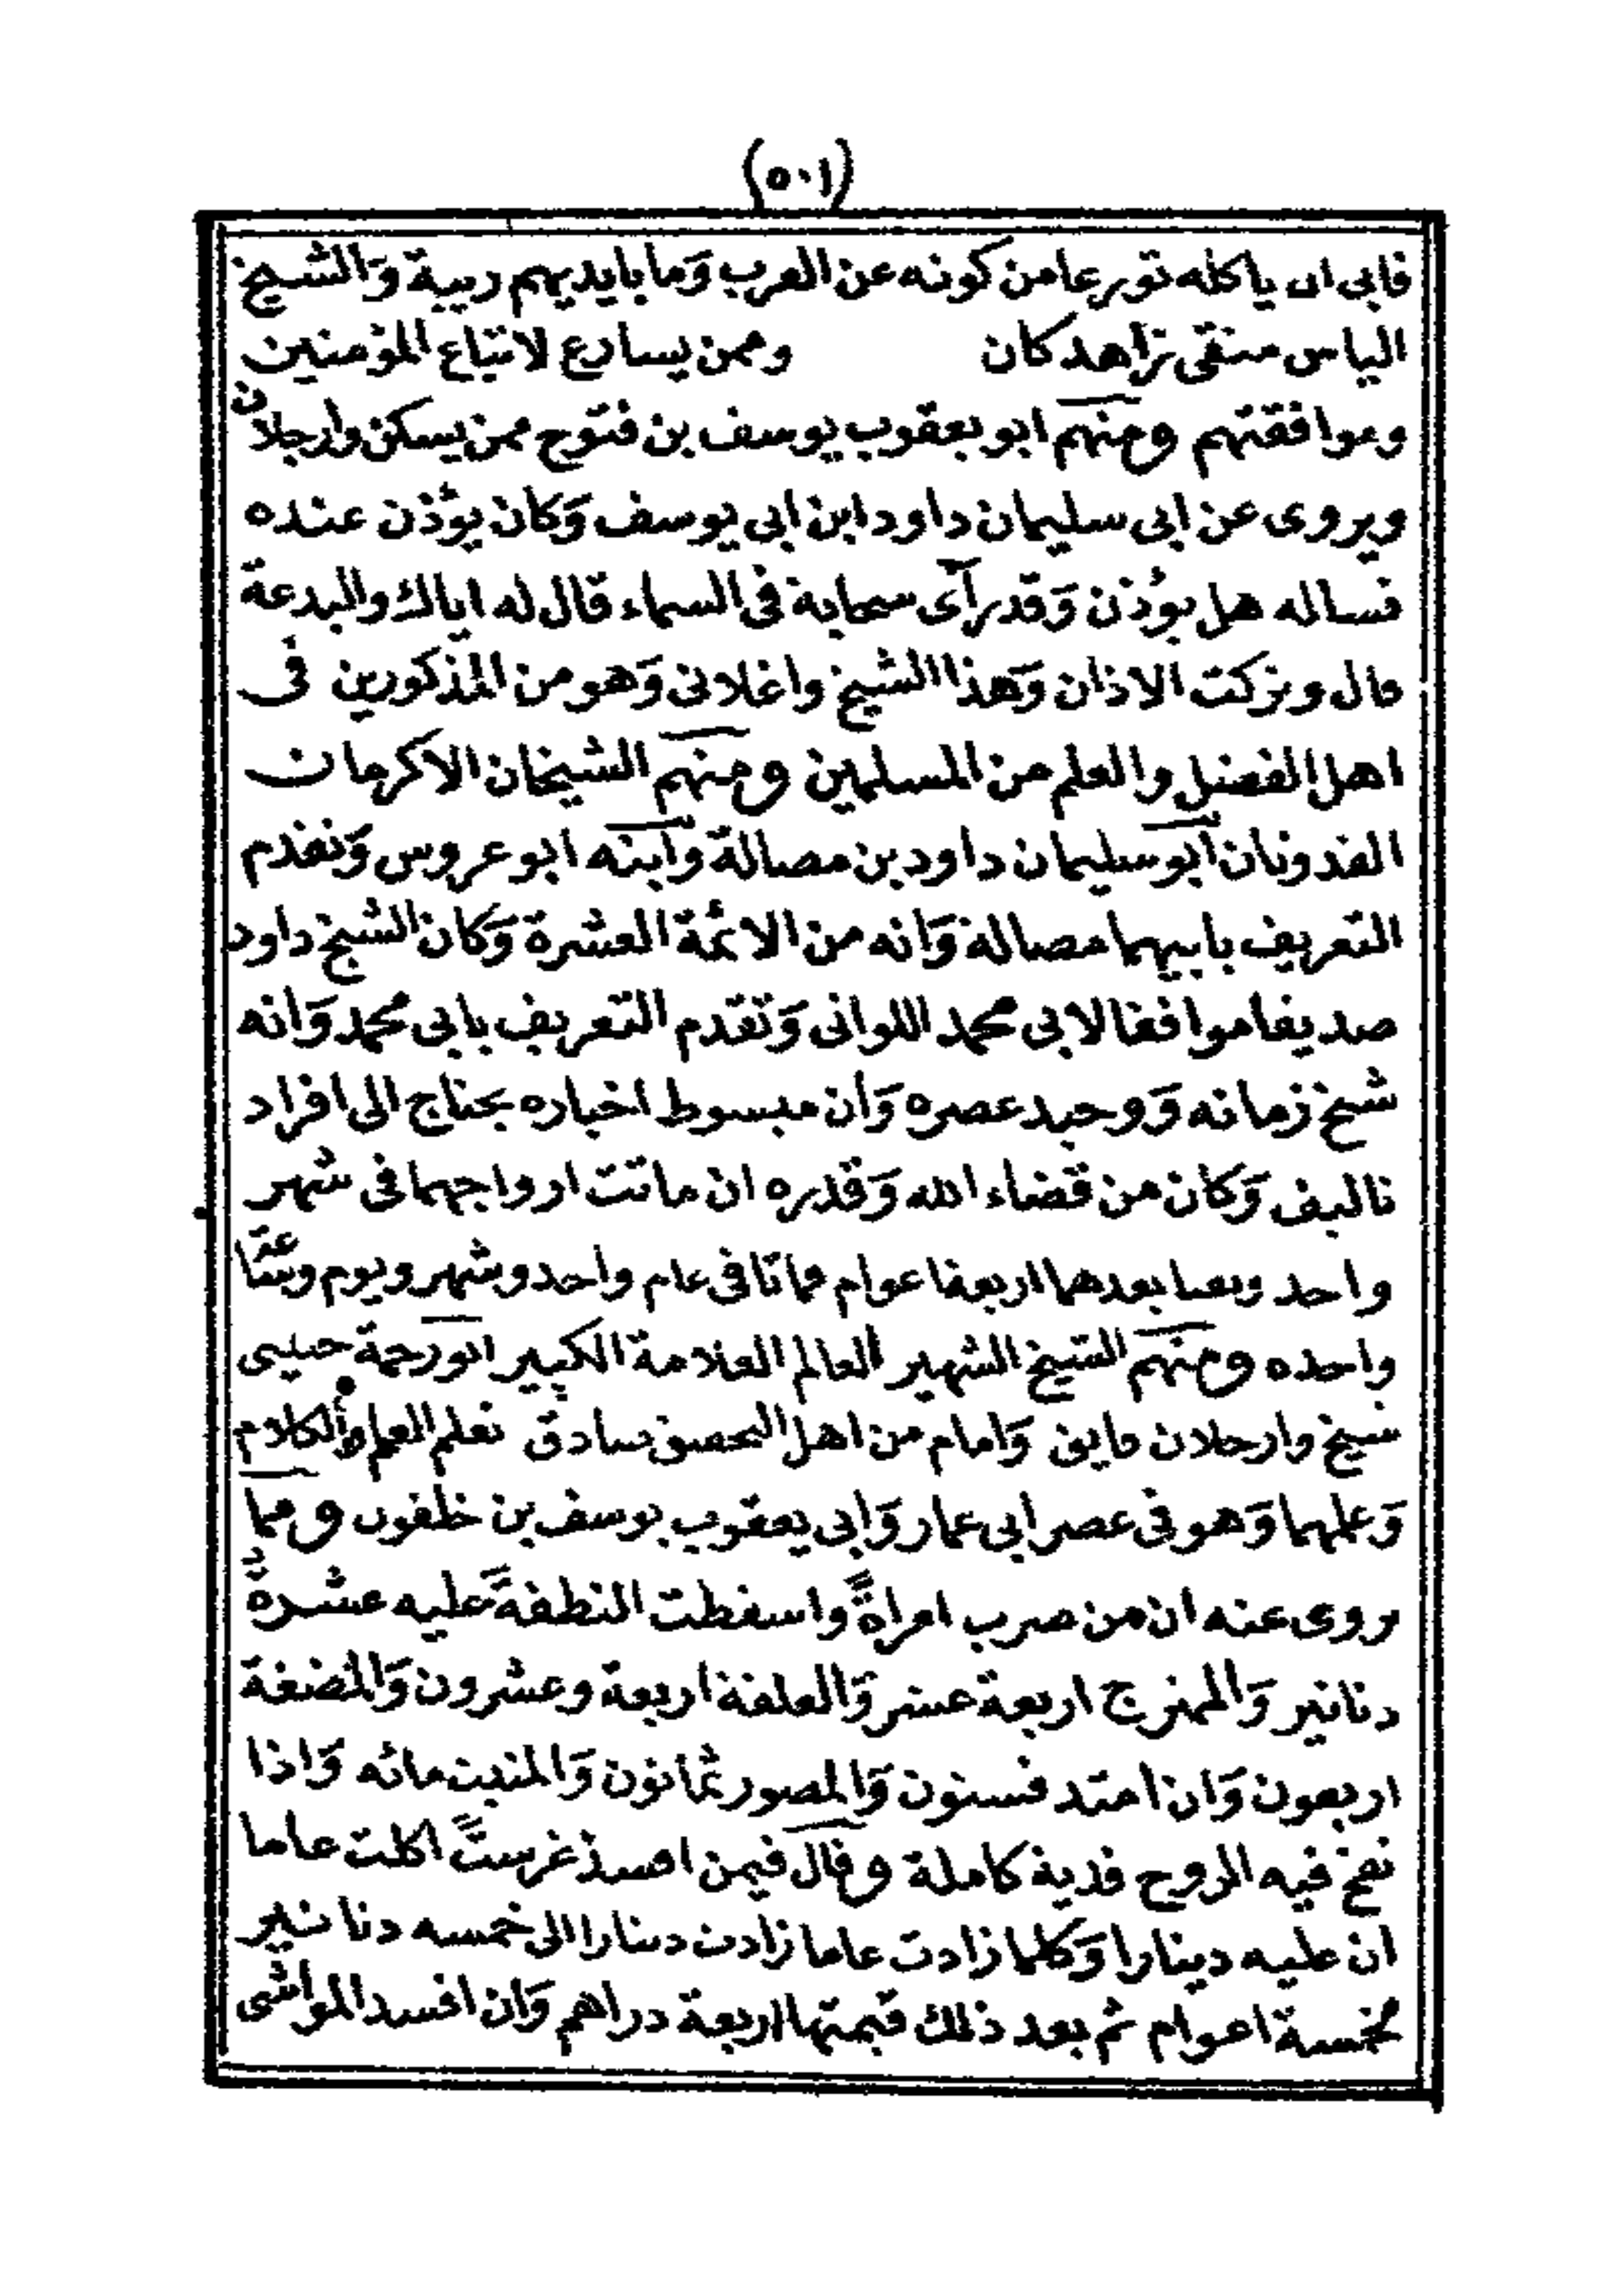 (٥٠١)
فابى ان ياكله تورعا من كونه عن العرب وَما بايديهم ريبة وَالشيخ
الياس متقى زاهد كان وممن يسارع لاتباع المؤمنين
وموافقتهم ومنهم ابو يعقوب يوسف بن فتوح ممن يسكن وارجلان
ويروى عن ابى سليمان داود ابن ابى يوسف وَكان يؤذن عنده
فساله هل يؤذن وَقد رآى سحابة فى السماء قال له اياك والبدعة
قال وتركت الاذان وَهذا الشيخ واغلانى وَهو من المذكورين فى
اهل الفضل والعلم من المسلمين ومنهم الشيخان الاكرمان
ابو سليمان داود بن مصالة وابنه ابو عروس وَتقدم
التعريف بابيهما مصالة وَانه من الائمة العشرة وَكان الشيخ داود
صديقا موافقا لابى محمد اللواتى وَتقدم التعريف بابى محمد وَانه
شيخ زمانه وَوحيد عصره وَان مبسوط اخباره يحتاج الى افراد
تاليف وَكان من قضاء الله وَقدره ان ماتت ازواجهما فى شهر
واحد وبقيا بعدهما اربعة اعوام فماتا فى عام واحد وشهر ويوم
واحده ومنهم الشيخ الشهير العالم العلامة الكبير ابو رحمة
شيخ وارجلان فايق وَامام من اهل التحقيق صادق تعلم العلم والكلام
وَعلمهما وَهو فى عصر ابى عمار وَابى يعقوب يوسف بن خلفون ومما
يروى عنه ان من ضرب امراةً واسقطت النطفةَ عليه عشرة
دنانير وَالممتزج اربعة عشر وَالعلقة اربعة وعشرون وَالمضغة
اربعون وَان امتد فستون وَالمصور ثمانون وَالمنبت مائه وَاذا
نفخ فيه الروح فدية كاملة وقال فيمن افسد غرست اكلت عاما
ان عليه دينارا وَكلما زادت عاما زادت دينارا الى خمسه دنانير
لخمسة اعوام ثم بعد ذلك قيمتها اربعة دراهم وَان افسد المواشى